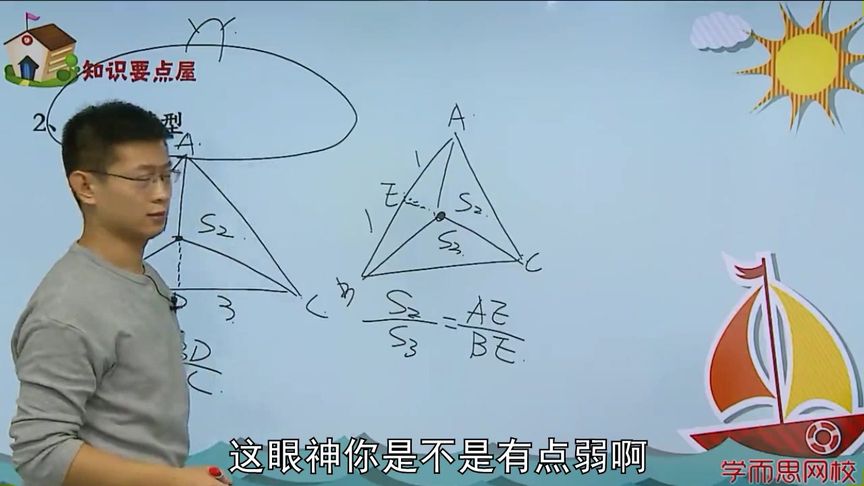 知识要点屋
2、
型
A
A
1
E
S2
S2
1
S3
C
B
D
3
C
S2/S3=AE/BE
BD
C
这眼神你是不是有点弱啊
学而思网校